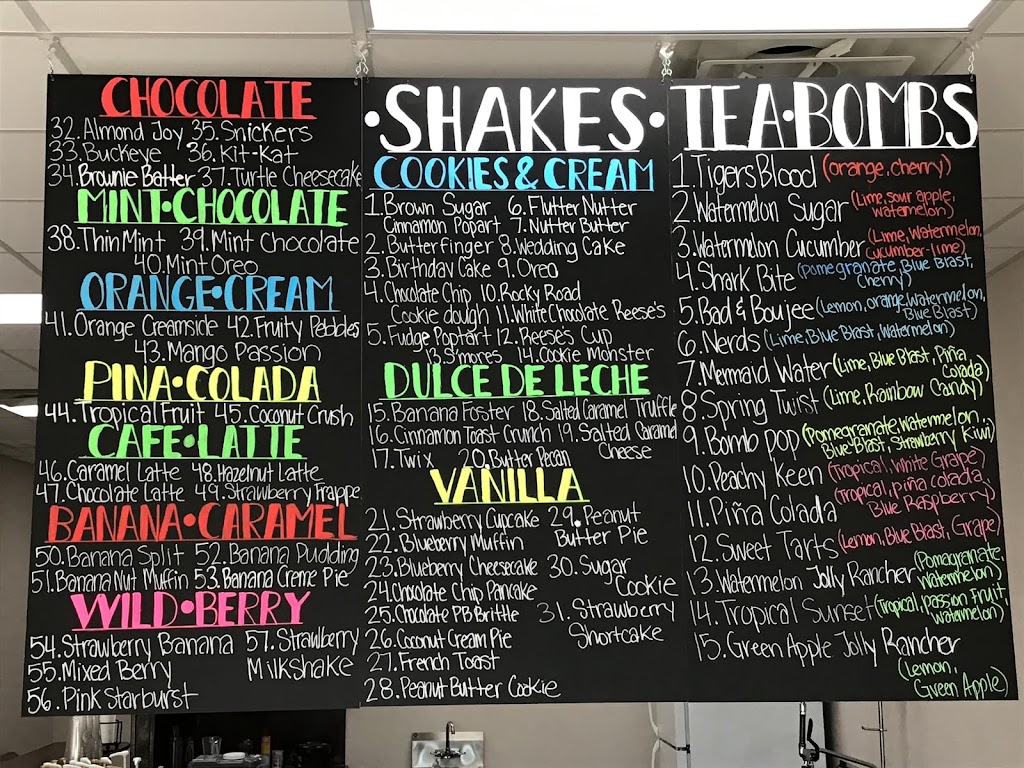 CHOCOLATE
32. Almond Joy 35. Snickers
33. Buckeye 36. Kit-Kat
34. Brownie Batter 37. Turtle Cheesecake
MINT•CHOCOLATE
38. Thin Mint 39. Mint Chocolate
40. Mint Oreo
ORANGE•CREAM
41. Orange Creamsicle 42. Fruity Pebbles
43. Mango Passion
PINA•COLADA
44. Tropical Fruit 45. Coconut Crush
CAFE•LATTE
46. Caramel Latte 48. Hazelnut Latte
47. Chocolate Latte 49. Strawberry Frappe
BANANA•CARAMEL
50. Banana Split 52. Banana Pudding
51. Banana Nut Muffin 53. Banana Creme Pie
WILD•BERRY
54. Strawberry Banana 57. Strawberry
55. Mixed Berry Milkshake
56. Pink Starburst
•SHAKES•
COOKIES & CREAM
1. Brown Sugar 6. Flutter Nutter
Cinnamon Popart 7. Nutter Butter
2. Butterfinger 8. Wedding Cake
3. Birthday Cake 9. Oreo
4. Chocolate Chip 10. Rocky Road
Cookie dough 11. White Chocolate Reese's
5. Fudge Poptart 12. Reese's Cup
13. S'mores 14. Cookie Monster
DULCE DE LECHE
15. Banana Foster 18. Salted Caramel Truffle
16. Cinnamon Toast Crunch 19. Salted Caramel
Cheese
17. Twix 20. Butter Pecan
VANILLA
21. Strawberry Cupcake 29. Peanut
22. Blueberry Muffin Butter Pie
23. Blueberry Cheesecake 30. Sugar
24. Chocolate Chip Pancake Cookie
25. Chocolate PB Brittle 31. Strawberry
26. Coconut Cream Pie Shortcake
27. French Toast
28. Peanut Butter Cookie
TEA•BOMBS
1. Tigers Blood (orange, cherry)
2. Watermelon Sugar (Lime, sour apple,
watermelon)
3. Watermelon Cucumber (Lime, Watermelon,
cucumber-lime)
4. Shark Bite (pomegranate, Blue Blast,
cherry)
5. Bad & Boujee (Lemon, orange, Watermelon,
Blue Blast)
6. Nerds (Lime, Blue Blast, Watermelon)
7. Mermaid Water (Lime, Blue Blast, Piña
Colada)
8. Spring Twist (Lime, Rainbow Candy)
9. Bomb pop (Pomegranate, Watermelon,
Blue Blast, Strawberry Kiwi)
10. Peachy Keen (Tropical, White Grape)
11. Piña Colada (Tropical, piña colada,
Blue Raspberry)
12. Sweet Tarts (Lemon, Blue Blast, Grape)
13. Watermelon Jolly Rancher (Pomegranate,
Watermelon)
14. Tropical Sunset (Tropical, passion fruit,
watermelon)
15. Green Apple Jolly Rancher
(Lemon,
Green Apple)